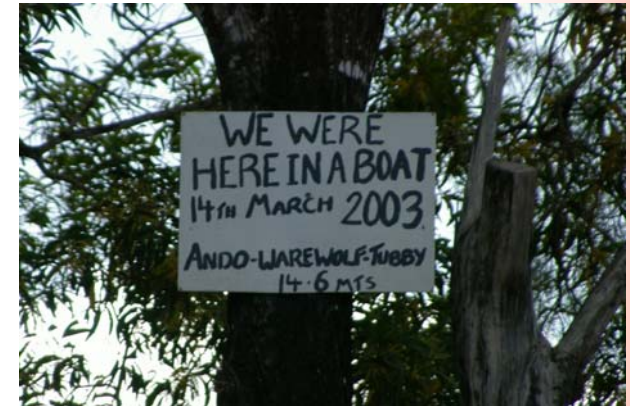 WE WERE
HERE IN A BOAT
14TH MARCH 2003
ANDO-WAREWOLF-TUBBY
14.6 MTS